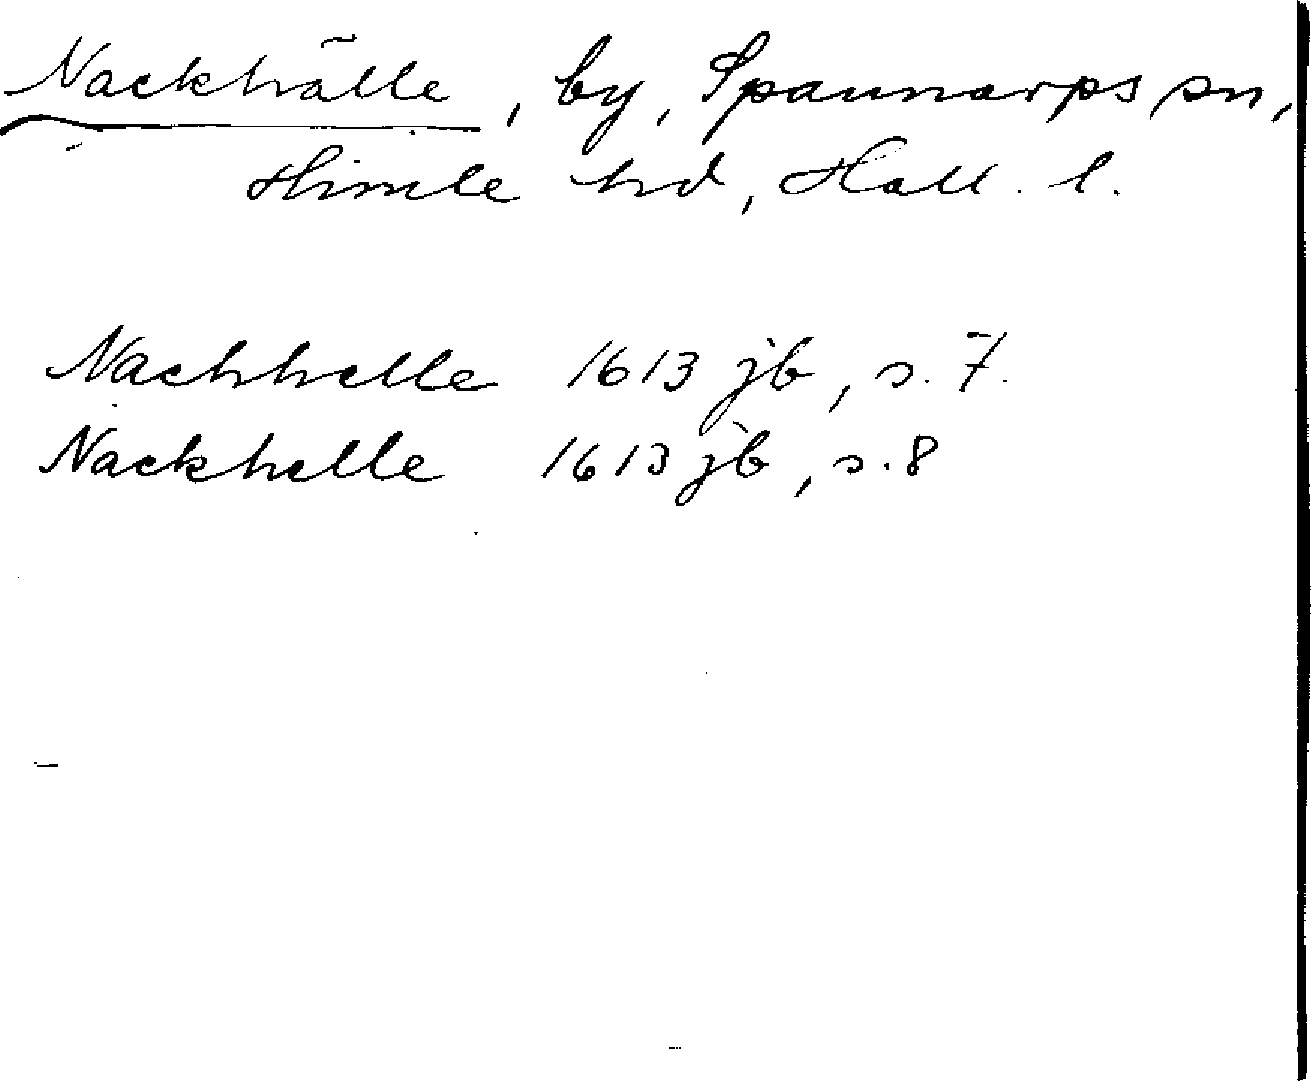 Nackhälle, by, Spannarps sn,
Himle hd, Hall. l.
Nachhelle 1613 jb, s. 7.
Nackhelle 1613 jb, s. 8